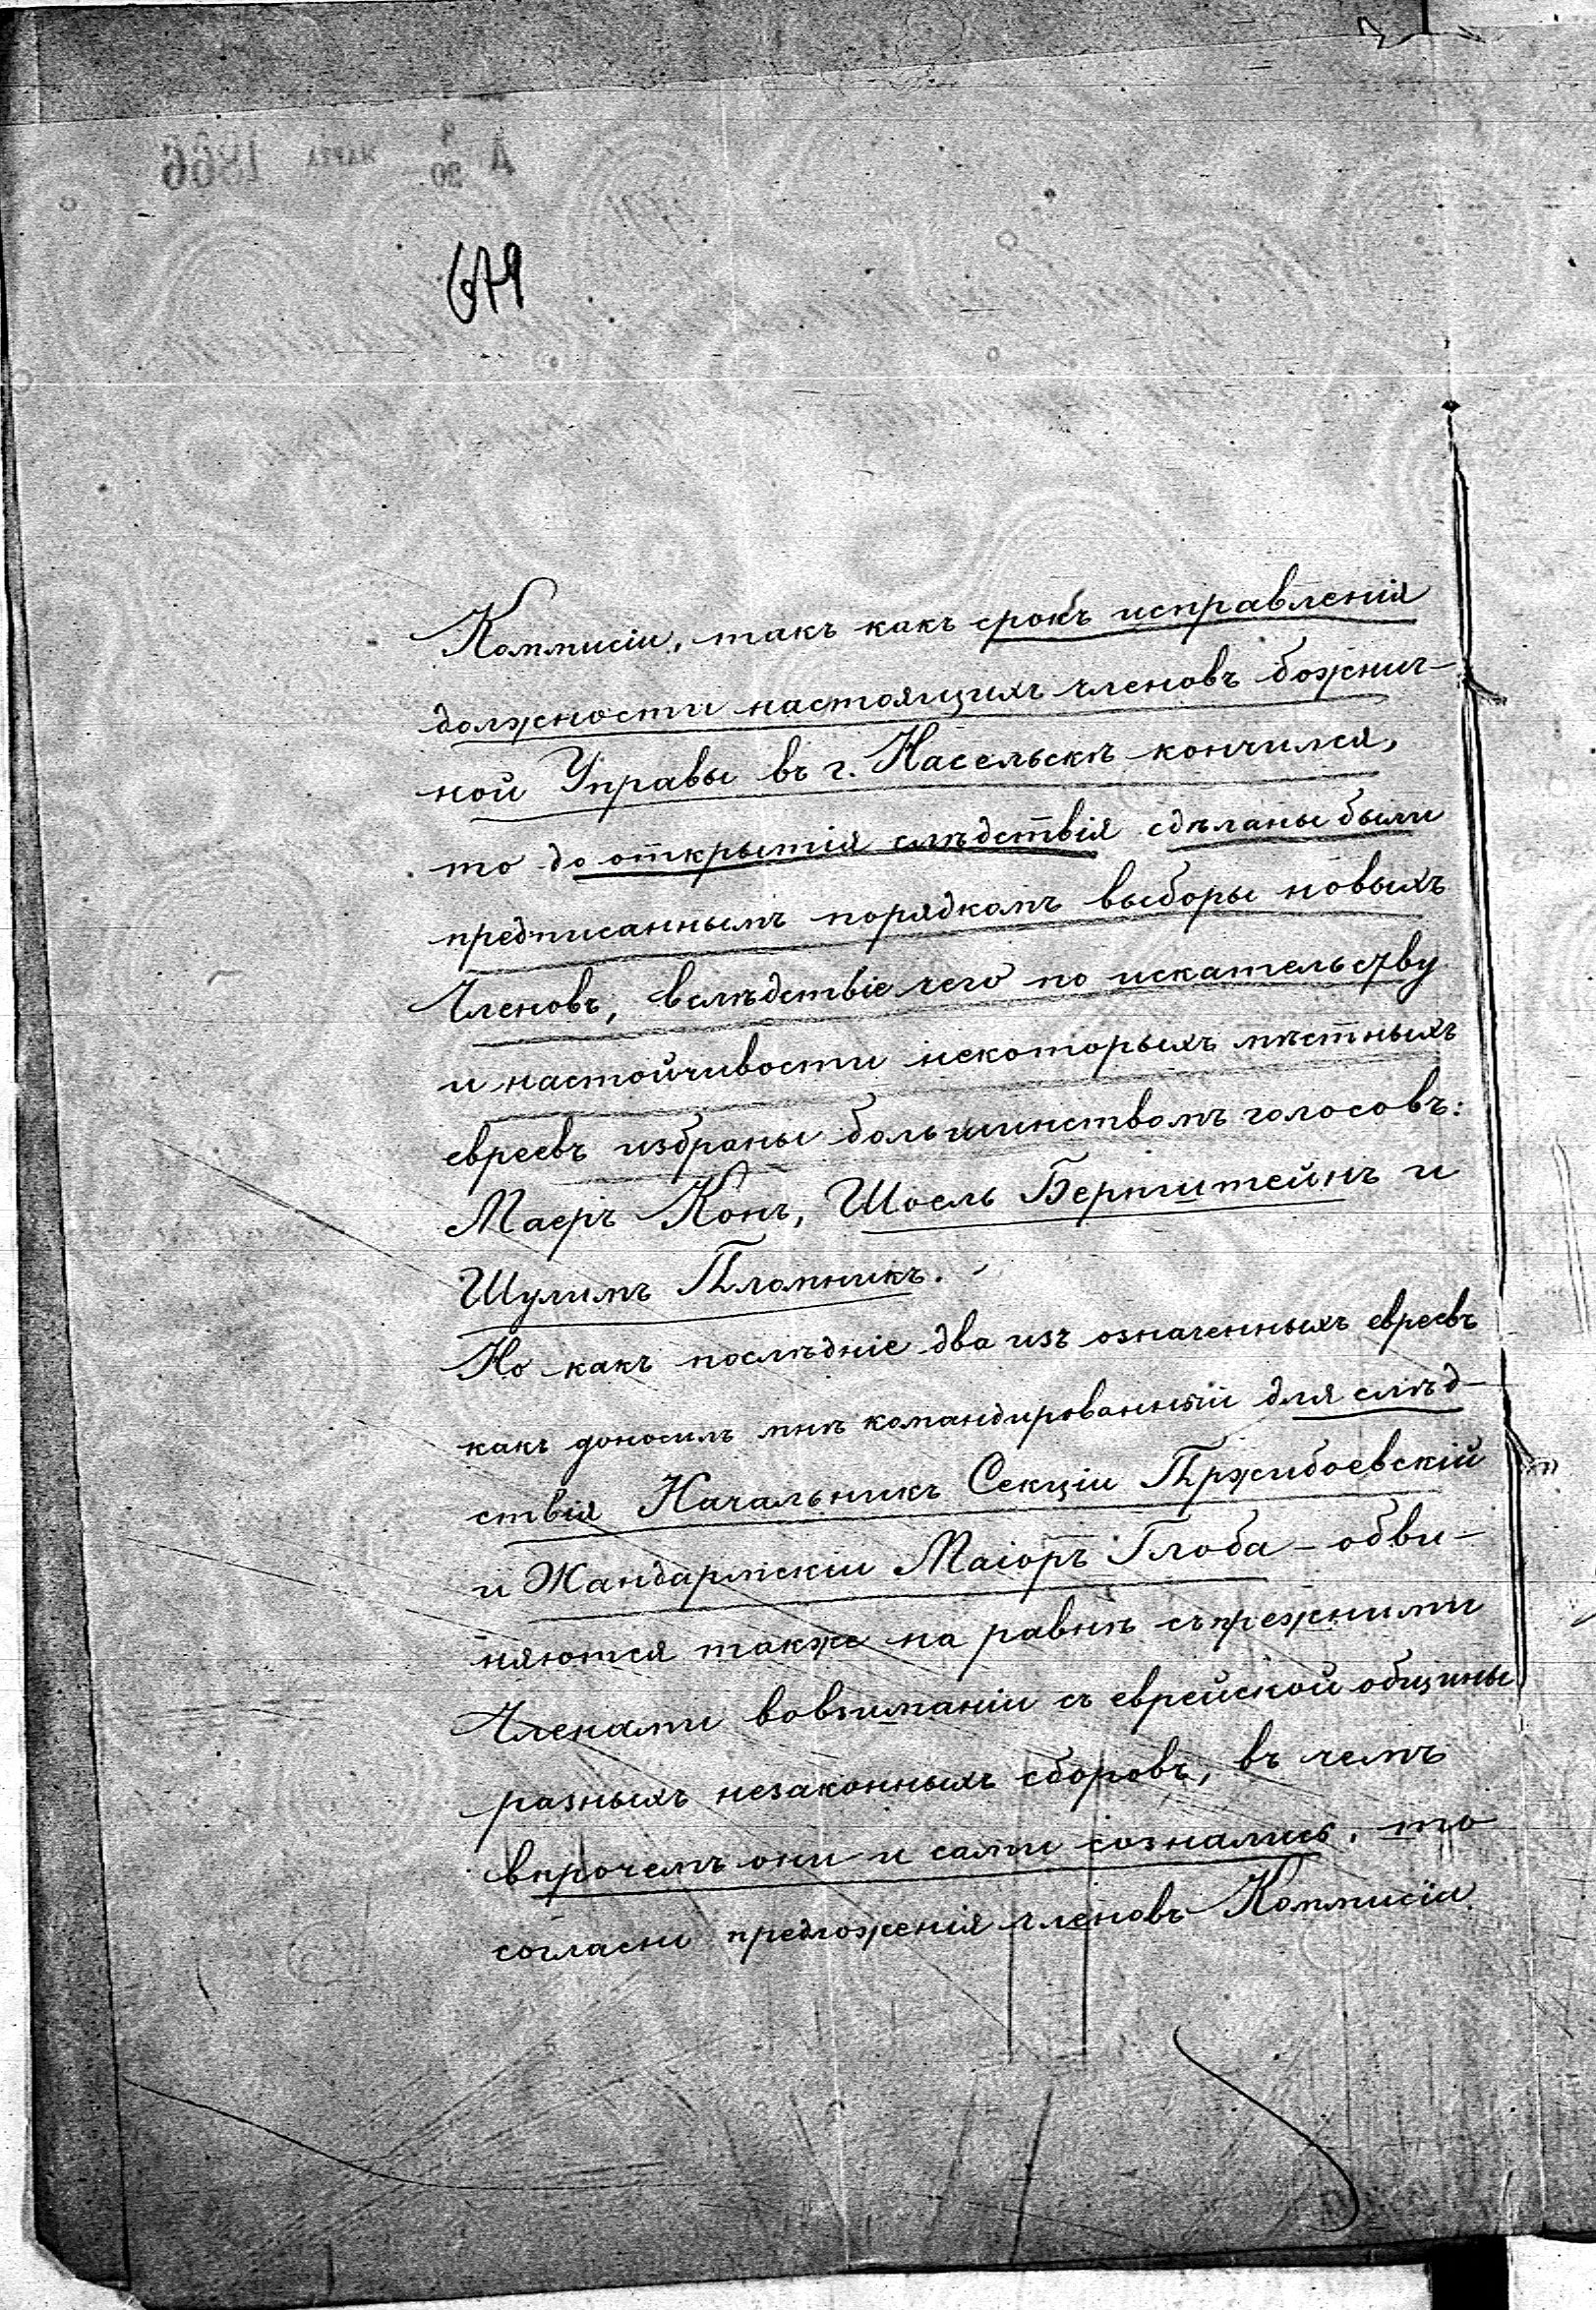 679
Коммисіи, такъ какъ срокъ исправленія
должности настоящихъ членовъ божнич-
ной Управы въ г. Насельскѣ кончился,
то до открытія слѣдствія сдѣланы были
предписаннымъ порядкомъ выборы новыхъ
Членовъ, вслѣдствіе чего по искательству
и настойчивости некоторыхъ мѣстныхъ
евреевъ избраны большинствомъ голосовъ:
Маеръ Конъ, Шоель Бернштейнъ и
Шулимъ Пломникъ.
Но какъ послѣдніе два изъ означенныхъ евреевъ
какъ доносилъ мнѣ командированный для слѣд-
ствія Начальникъ Секціи Пржибоевскій
и Жандармскіи Маіоръ Глоба - обви-
няются также на равнѣ съ прежними
Членами во взиманіи съ еврейской общины
разныхъ незаконныхъ сборовъ, въ чемъ
впрочемъ они и сами сознались, то
согласни предложенія членовъ Коммисіи